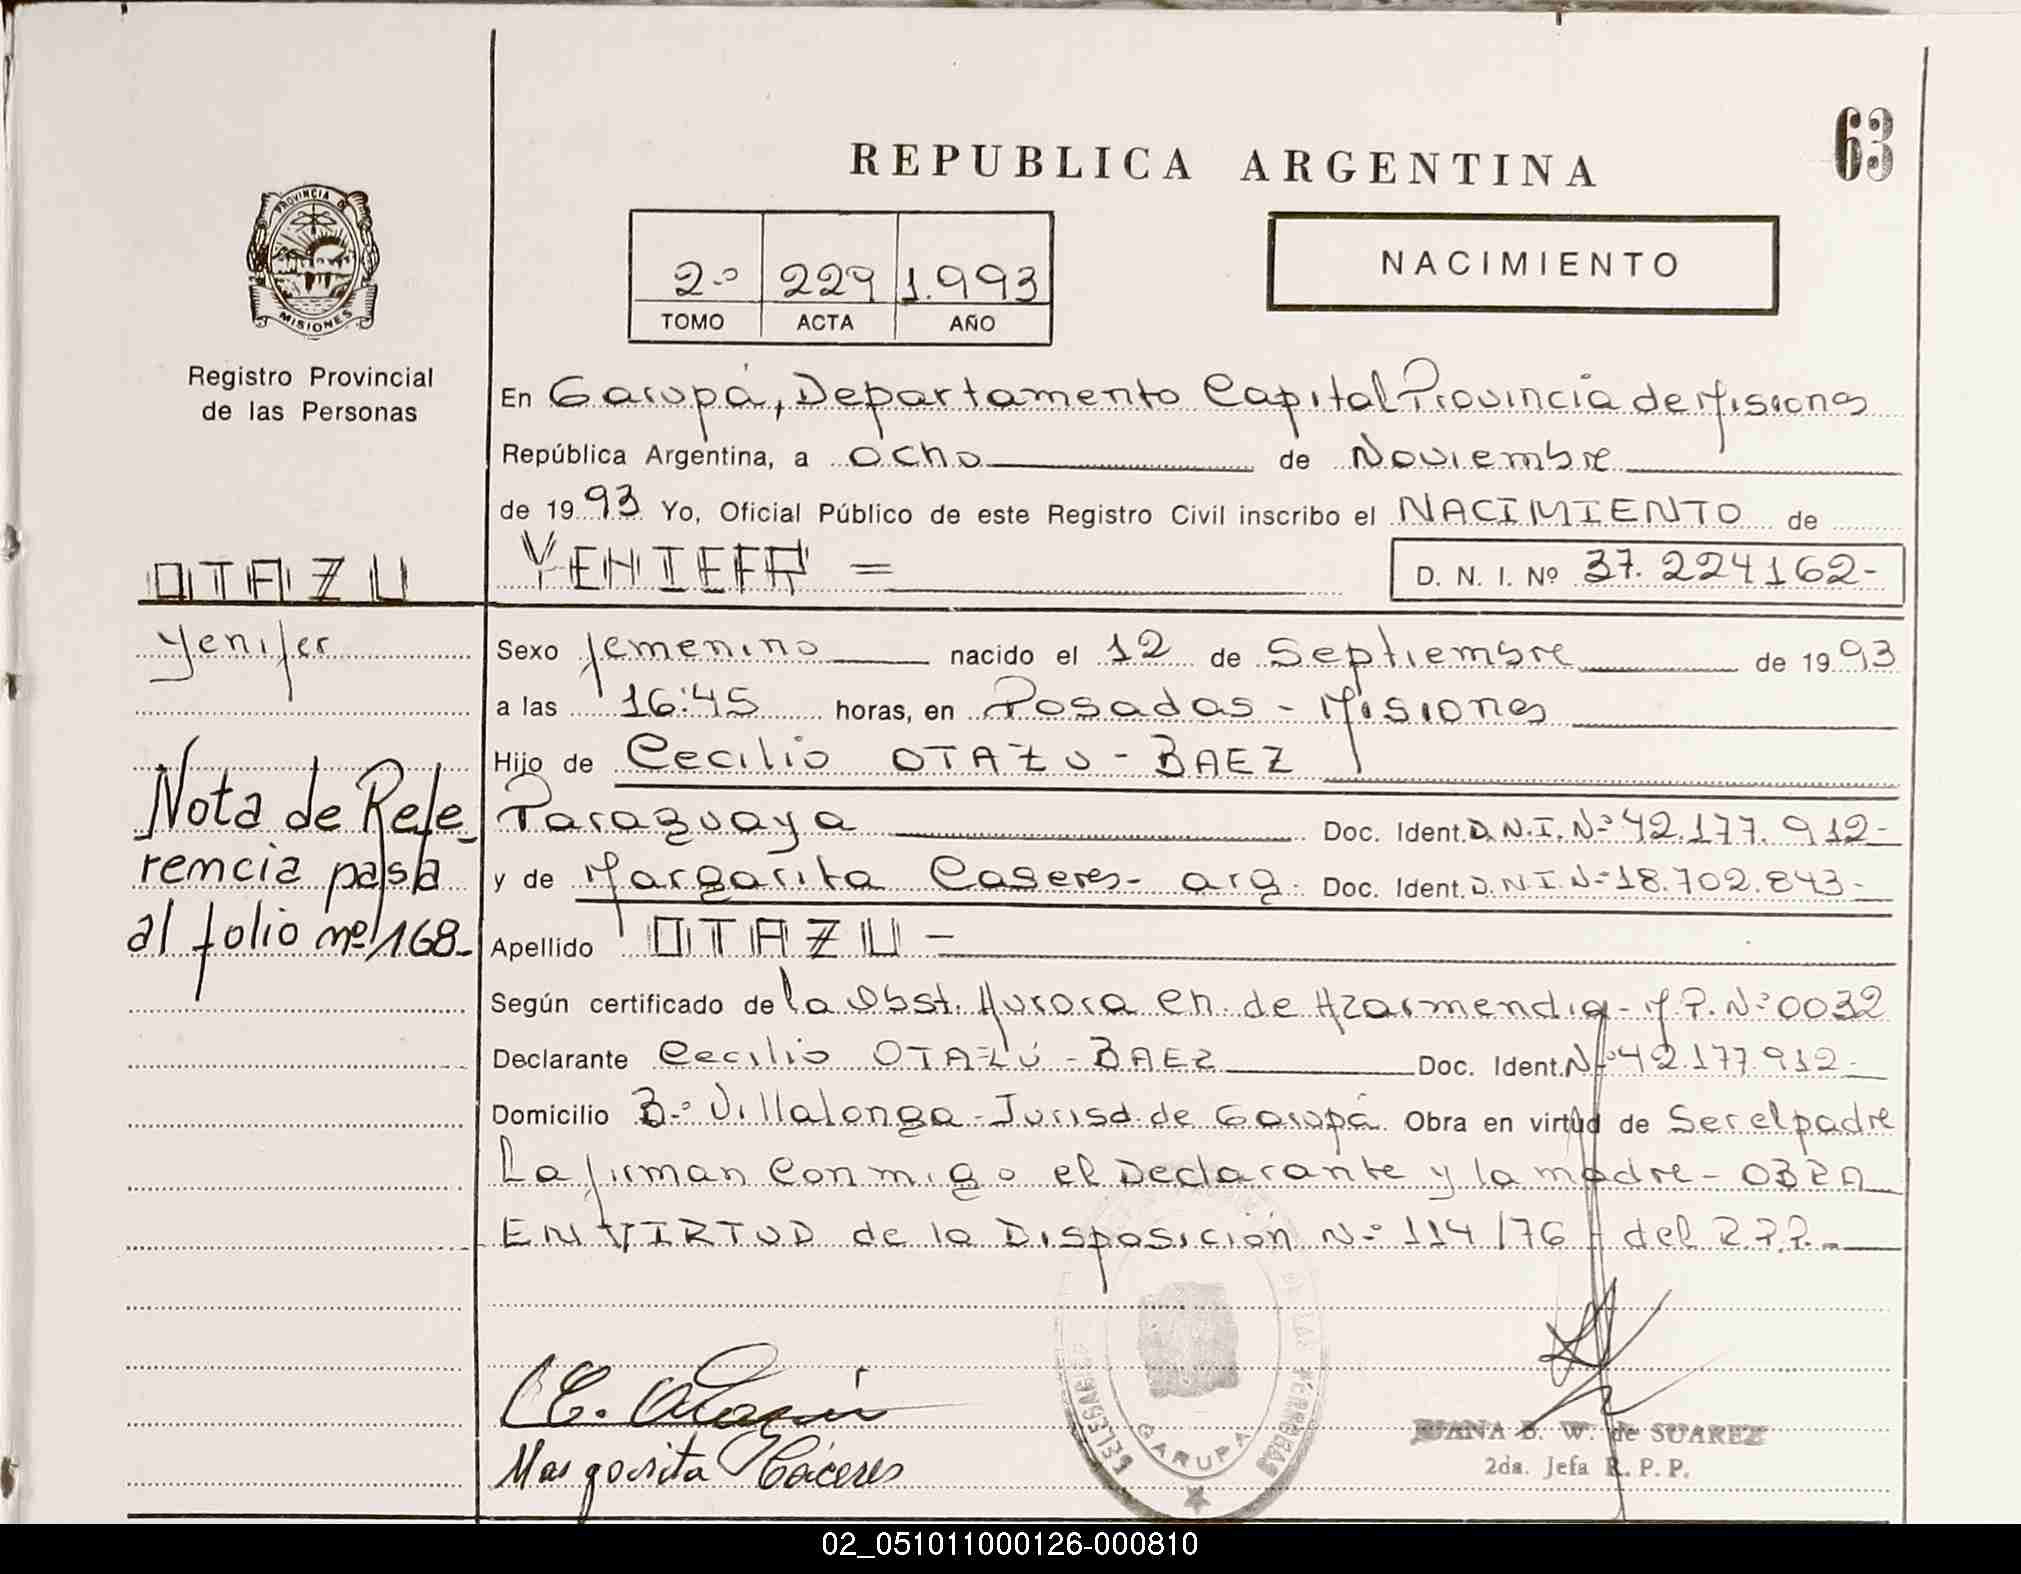 63
REPUBLICA ARGENTINA
PROVINCIA DE
MISIONES
Registro Provincial
de las Personas
2º 229 1.993
TOMO ACTA AÑO
NACIMIENTO
En Garupá, Departamento Capital Provincia de Misiones
República Argentina, a ocho de Noviembre
de 1993 Yo, Oficial Público de este Registro Civil inscribo el NACIMIENTO de
OTAZU
YENIEFR =
D. N. I. Nº 37.224162-
Yenifer
Sexo femenino nacido el 12 de Septiembre de 1993
a las 16:45 horas, en Posadas - Misiones
Hijo de Cecilio OTAZU - BAEZ
Nota de Refe-
rencia pasa
al folio nº 168-
Paraguaya Doc. Ident. D.N.I. Nº 42.177.912-
y de Margarita Caseres - arg. Doc. Ident. D.N.I. Nº 18.702.843-
Apellido OTAZU -
Según certificado de la Obst. Aurora Ch. de Azarmendia - M.P. Nº 0032
Declarante Cecilio OTAZU - BAEZ Doc. Ident. Nº 42.177.912-
Domicilio Bº Villalonga - Jurisd. de Garupá Obra en virtud de Ser el padre
La firman Conmigo el Declarante y la madre - OBRA
EN VIRTUD de la Disposición Nº 114/76 - del R.P.P.
Margarita Cáceres
DE LAS PERSONAS
GARUPA
JUANA B. W. de SUAREZ
2da. Jefa R. P. P.
02_051011000126-000810